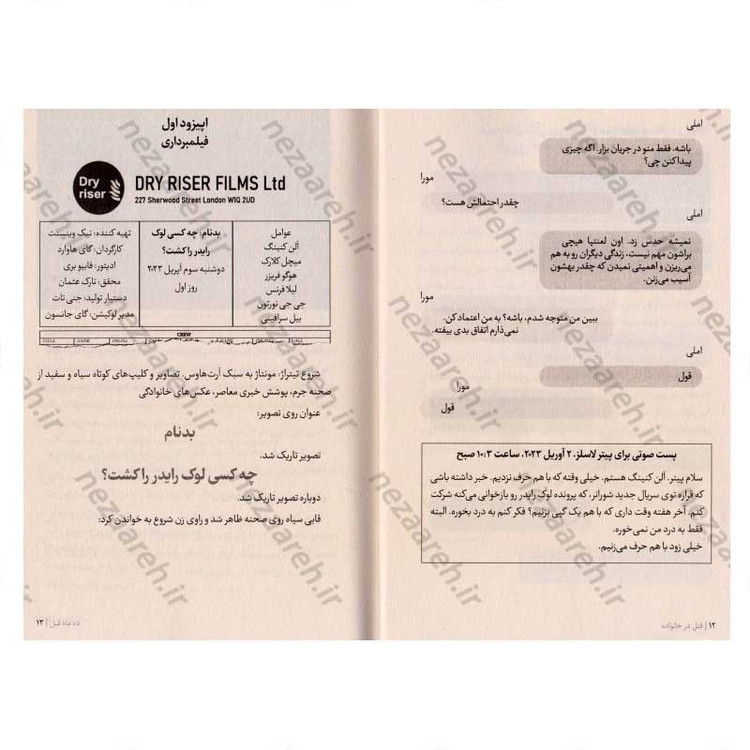 املی
باشه، فقط منو در جریان بزار. اگه چیزی
پیدا کنن چی؟
مورا
چقدر احتمالش هست؟
املی
نمیشه حدس زد. اون لعنتیا هیچی
براشون مهم نیست، زندگی دیگران رو به هم
می‌ریزن و اهمیتی نمیدن که چقدر بهشون
آسیب می‌زنن.
مورا
ببین من متوجه شدم، باشه؟ به من اعتماد کن.
نمی‌ذارم اتفاق بدی بیفته.
املی
قول
مورا
قول
پست صوتی برای پیتر لاسلز، ۲ آوریل ۲۰۲۳، ساعت ۱۰:۳ صبح
سلام پیتر. آلن کنینگ هستم. خیلی وقته که با هم حرف نزدیم. خبر داشته باشی
که قراره توی سریال جدید شورانر، که پرونده لوک رایدر رو بازخوانی می‌کنه شرکت
کنم. آخر هفته وقت داری که با هم یک گپی بزنیم؟ فکر کنم به درد بخوره. البته
فقط به درد من نمی‌خوره.
خیلی زود با هم حرف می‌زنیم.
۱۲ | قتل در خانواده
اپیزود اول
فیلمبرداری
Dry riser
DRY RISER FILMS Ltd
227 Sherwood Street London W1Q 2UD
عوامل
آلن کنینگ
میچل کلارک
هوگو فریزر
لیلا فرنس
جی جی نورتون
بیل سرافینی
بدنام: چه کسی لوک
رایدر را کشت؟
دوشنبه سوم آپریل ۲۰۲۳
روز اول
تهیه کننده: نیک وینسنت
کارگردان: گای هاوارد
ادیتور: فابیو بری
محقق: تارک عثمان
دستیار تولید: جنی تات
مدیر لوکیشن: گای جانسون
CREW
شروع تیتراژ: مونتاژ به سبک آرت‌هاوس. تصاویر و کلیپ‌های کوتاه سیاه و سفید از
صحنه جرم، پوشش خبری معاصر، عکس‌های خانوادگی
عنوان روی تصویر:
بدنام
تصویر تاریک شد.
چه کسی لوک رایدر را کشت؟
دوباره تصویر تاریک شد.
قابی سیاه روی صحنه ظاهر شد و راوی زن شروع به خواندن کرد:
ده ماه قبل | ۱۳
nezaareh.ir